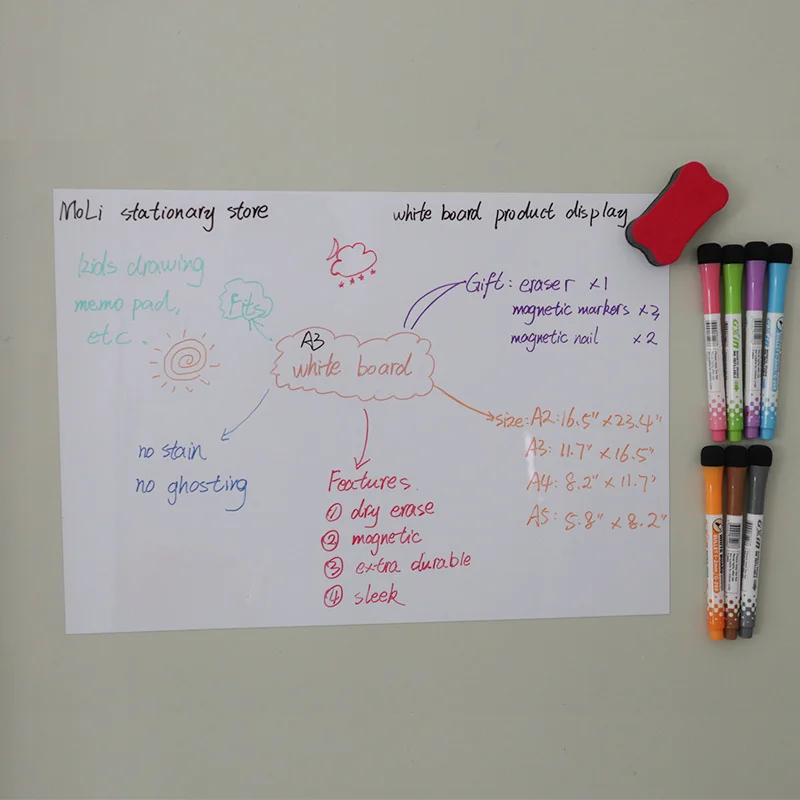 MoLi stationary store
white board product display
kids drawing
memo pad,
etc.
Fits
Gift: eraser x1
magnetic markers x3
magnetic nail x2
A3
white board
size: A2: 16.5" x 23.4"
A3: 11.7" x 16.5"
A4: 8.2" x 11.7"
A5: 5.8" x 8.2"
no stain
no ghosting
Features
① dry erase
② magnetic
③ extra durable
④ sleek